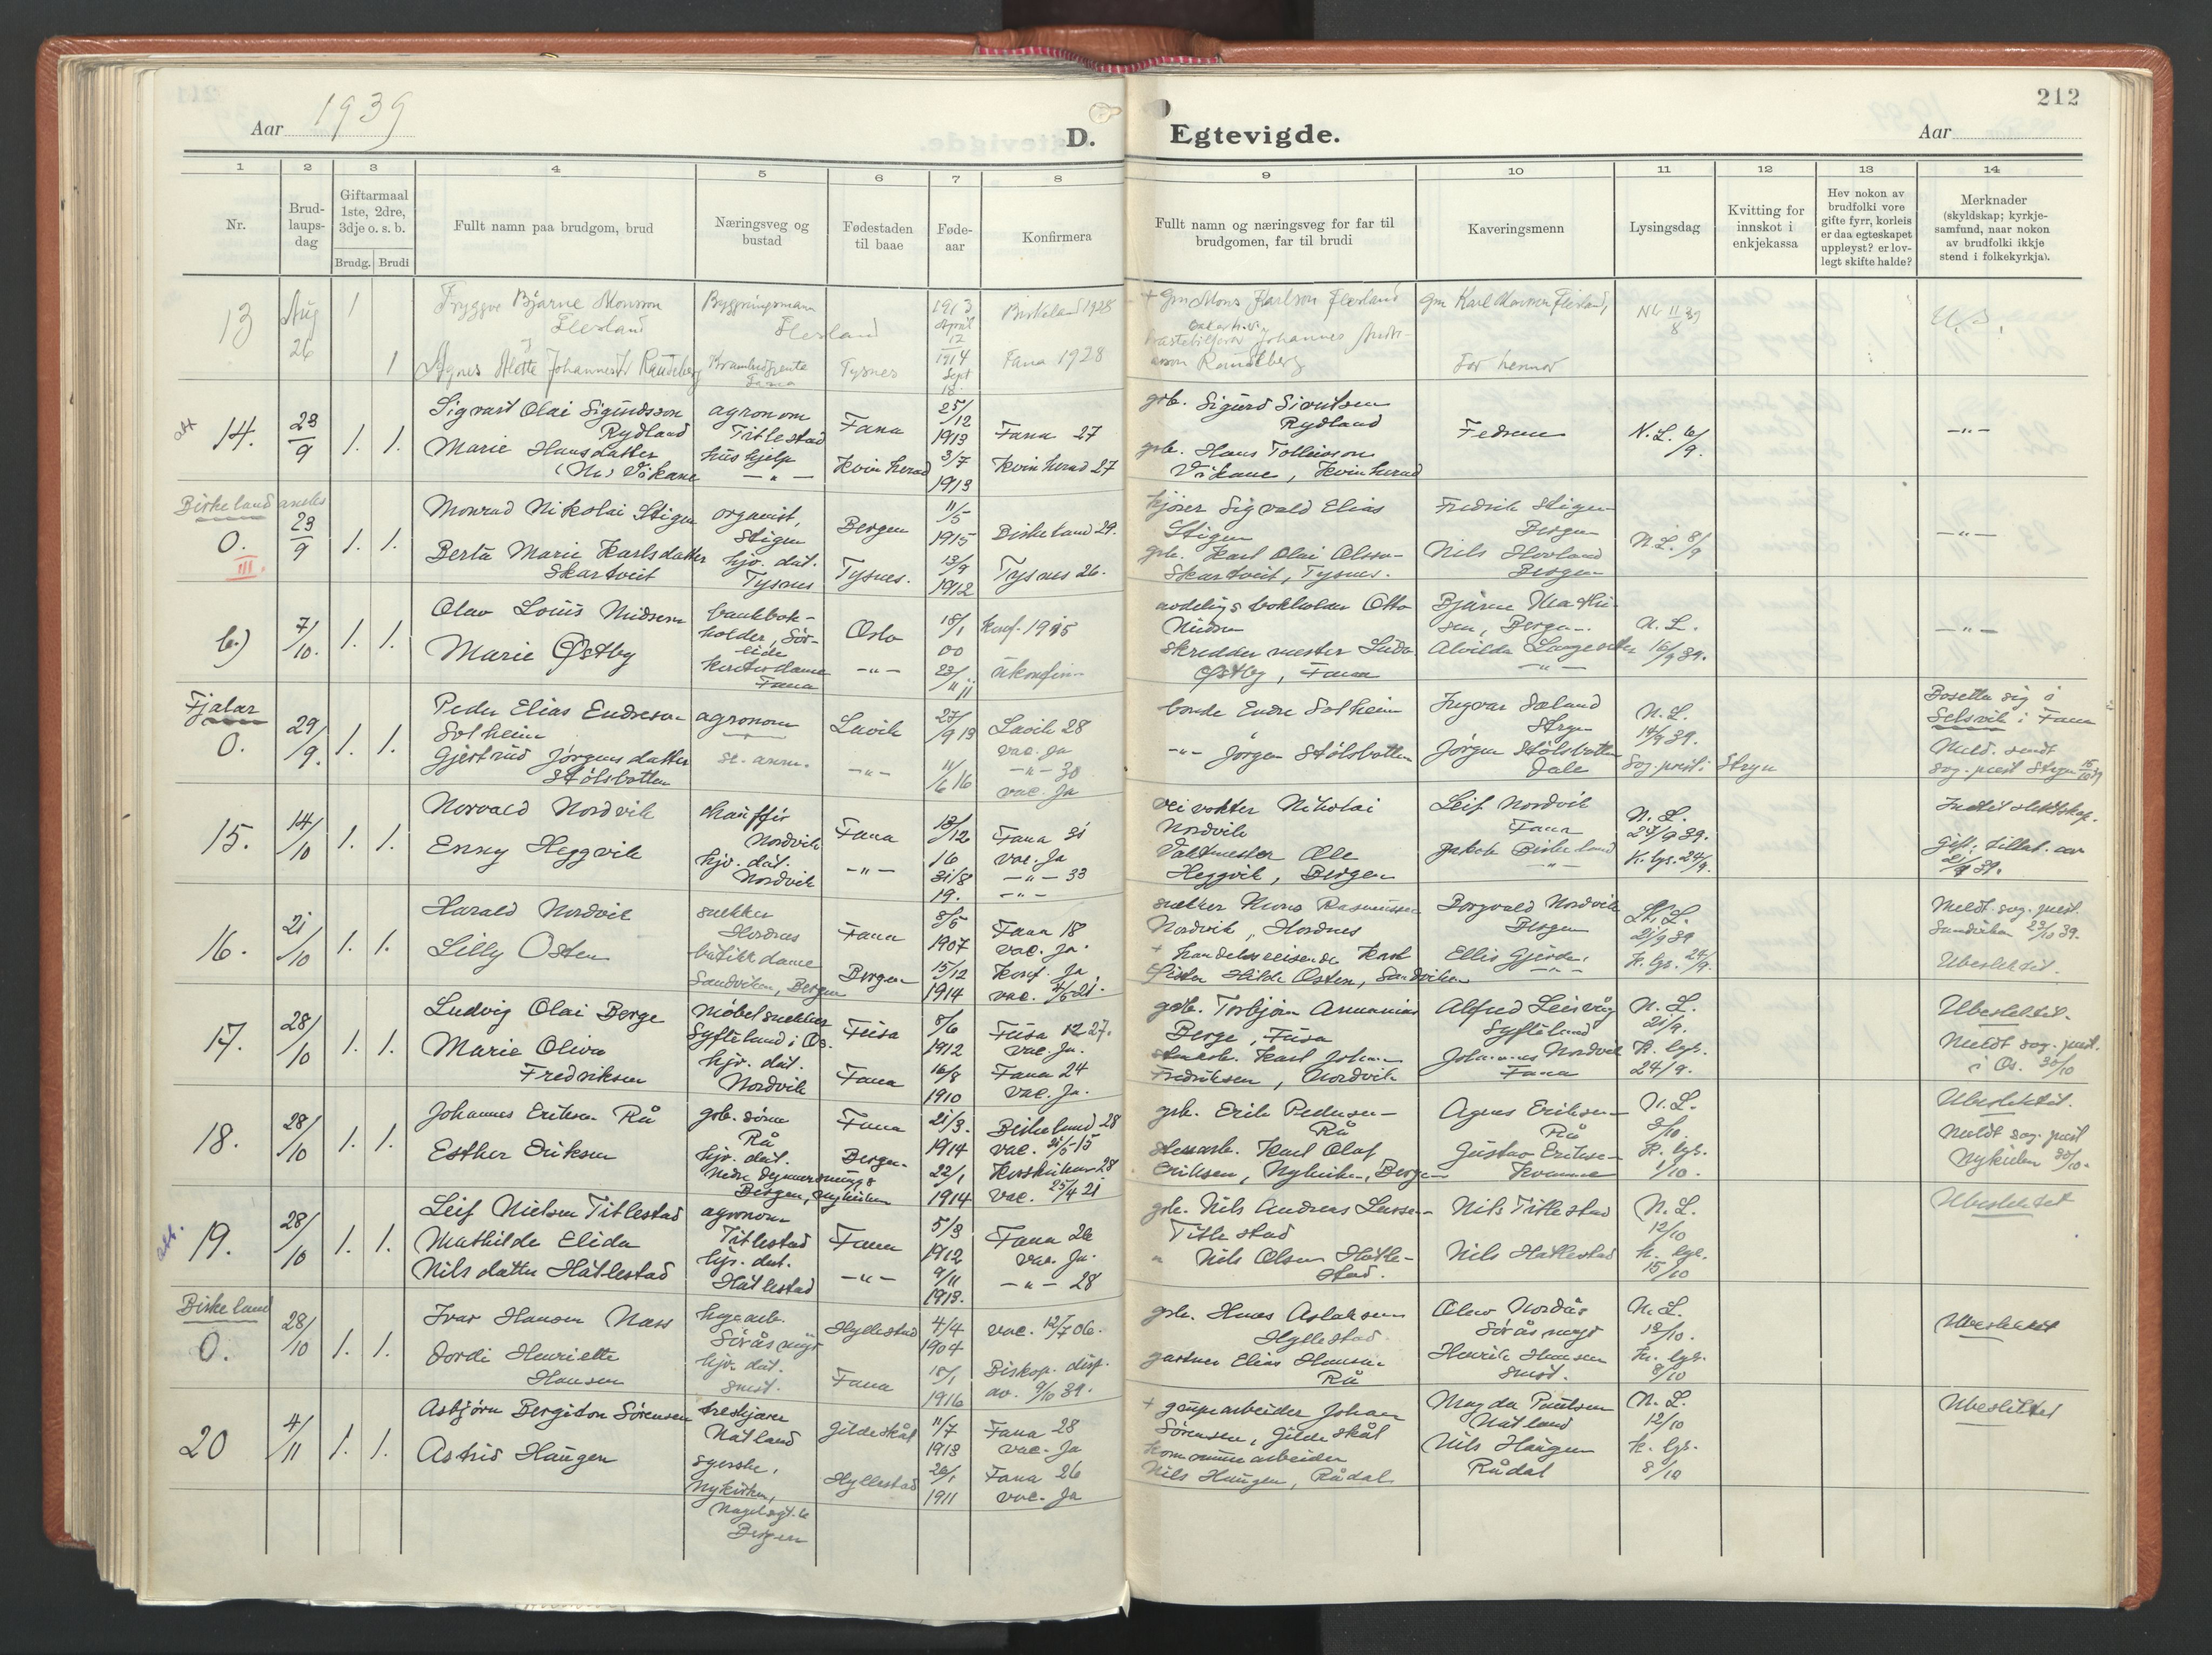 212
Aar 1939
D. Egtevigde.
Aar
1 2 3 4 5 6 7 8 9 10 11 12 13 14
Nr.
Brud-
laups-
dag
Giftarmaal
1ste, 2dre,
3dje o. s. b.
Brudg. Brudi
Fullt namn paa brudgom, brud
Næringsveg og
bustad
Fødestaden
til baae
Føde-
aar
Konfirmera
Fullt namn og næringsveg for far til
brudgomen, far til brudi
Kaveringsmenn
Lysingsdag
Kvitting for
innskot i
enkjekassa
Hev nokon av
brudfolki vore
gifte fyrr, korleis
er daa egteskapet
uppløyst? er lov-
legt skifte halde?
Merknader
(skyldskap; kyrkje-
samfund, naar nokon
av brudfolki ikkje
stend i folkekyrkja).
13
Aug
26
1
1
Tryggve Bjarne Monsson
Flesland
Agnes Alette Johannesdtr Randeberg
Bygningsmann
Flesland
Fana
Tysnes
1913
April
12
1914
Sept
18
Birkeland 1928
Fana 1928
+ Gm Mons Karlson Flesland
Johannes
Gm Karl Monsson Flesland,
Far hennar
NL 11/8 39
U.S.
att
14.
23/9
1. 1.
Sigvart Olai Sigurdsson
Rydland
Marie Hansdatter
(Nes) Vikane
agronom
Titlestad
hushjelp
— " —
Fana
Kvinherad
25/12
1913
3/7
1913
Fana 27
Kvinherad 27
grb. Sigurd Sivertsen
Rydland
grb. Hans Tolleivson
Vikane, Kvinherad
Fedrene
N. L. 6/9.
— " —
Birkeland anneks
0.
III.
23/9
1. 1.
Monrad Nikolai Stigen
Berta Marie Karlsdatter
Skartveit
organist,
Stigen
hjv. dat.
Tysnes
Bergen
Tysnes.
11/5
1915
13/9
1912
Birkeland 29.
Tysnes 26.
kjører Sigvald Elias
Stigen
grb. Karl Olai Olsen
Skartveit, Tysnes.
Fredrik Stigen
Bergen
Nils Hovland
Bergen
N. L. 8/9
— " —
b.)
7/10.
1. 1.
Olav Louis Nielsen
Marie Østby
bankbok-
holder, Sør-
eide
kontordame
Fana
Oslo
— " —
18/1
00
23/11 11
Konf. 1915
ukonfirm
avdelings bokholder Otto
Nielsen
skreddermester Ludv.
Østby, Fana
Bjarne Mathi-
sen, Bergen.
Alvilda Langeseter
— " —
N. L.
16/9 39.
— " —
Fjalar
0.
29/9.
1. 1.
Peder Elias Endresen
Solheim
Gjertrud Jørgensdatter
Stølsbotten
agronom
st. anm.
Lavik
— " —
27/9 13
11/6 16
Lavik 28
vac. ja
— " — 30
vac. Ja
bonde Endre Solheim
— " — Jørgen Stølsbotten
Ingvar Dæland
Stryn
Jørgen Stølsbotten
Dale
N. L.
14/9 39.
Sog. prest i Stryn
Bosette sig i
Selsvik i Fana
Meld. sendt
sog. prest Stryn 15/10 39
15.
14/10
1. 1.
Norvald Nordvik
Enny Heggvik
chauffør
Nordvik
hjv. dat.
Nordvik
Fana
— " —
13/12
16
31/8
19.
Fana 31
vac. Ja
— " — 33
— " —
veivokter Nikolai
Nordvik
Vaktmester Ole
Heggvik, Bergen
Leif Nordvik
Fana
Jakob Birkeland
— " —
N. L.
24/9 39.
K. lys. 24/9.
Inntet slektskap.
Gift. tillat. av
21/9 39.
16.
21/10
1. 1.
Harald Nordvik
Lilly Osten
snekker
Hordnes
butikkdame
Sandviken, Bergen
Fana
Bergen
8/5
1907
15/12
1914
Fana 18
vac. ja.
Konf. Ja
vac. 4/6 21.
snekker Mons Rasmussen
Nordvik, Hordnes
+ handelsreisende Karl
Hilda Osten, Sandviken
Borgvald Nordvik
Bergen
Ellis Gjerde,
— " —
N. L.
21/9 39
K. lys. 24/9.
Meldt. sog. prest.
Sandviken 23/10 39.
Ubeslektet.
17.
28/10
1. 1.
Ludvig Olai Berge
Marie Oliva
Fredriksen
Møbelsnekker
Syfteland i Os.
hjv. dat.
Nordvik
Fusa
Fana
8/6
1912
16/8
1910
Fusa 27.
vac. Ja.
Fana 24
vac. Ja.
grb. Torbjørn Annanias
Berge, Fusa
Karl Johan
Fredriksen, Nordvik
Alfred Leirvåg
Syfteland
Johannes Nordvik
Fana
N. L.
21/9.
K. lys.
24/9.
Ubeslektet.
Meldt sog. prest.
i Os. 30/10
18.
28/10
1. 1.
Johannes Eriksen Rå
Esther Eriksen
grb. sønn
Rå
hjv. dat.
nedre
Bergen, Nykirken
Fana
Bergen.
21/3.
1914
22/1
1914
Birkeland 28
vac. 31/5 15
Korskirken 28
vac. 25/4 21
grb. Erik Pedersen
Rå
Karl Olaf
Eriksen, Nykirken, Bergen
Agnes Eriksen
Rå
Gustav Eriksen
Kvamme
N. L.
3/10.
K. lys.
1/10.
Ubeslektet.
Meldt sog. prest
Nykirken 30/10.
att.
19.
28/10
1. 1.
Leif Nielsen Titlestad
Mathilde Elida
Nilsdatter Hatlestad
agronom
Titlestad
hjv. dat.
Hatlestad
Fana
— " —
5/3
1912
9/11
1913.
Fana 26
vac. Ja.
— " — 28
grb. Nils Andreas Larsen
Titlestad
" Nils Olsen Hatle-
stad.
Nils Titlestad
Nils Hatlestad
N. L.
12/10
K. lys.
15/10
Ubeslektet
Birkeland
0.
28/10
1. 1.
Ivar Hansen Næss
Dordi Henriette
Hansen
hagearb.
Söråsmyr
hjv. dat.
smst.
Hyllestad
Fana
4/4
1904
18/1
1916
vac. 12/7 06.
Biskop. disp.
av. 9/10 39.
grb. Hans Aslaksen
Hyllestad
gartner Elias Hansen
Rå
Olav Nordås
Söråsmyr
Henrik Hansen
smst.
N. L.
12/10.
K. lys.
8/10
Ubeslektet
20
4/11
1. 1.
Asbjørn Bergiton Sørensen
Astrid Haugen
treskjærer
Natland
syerske,
Nykirken,
Bergen
Gildeskål
Hyllestad
11/7
1913
20/1
1911
Fana 28
vac. Ja
Fana 26
vac. Ja
+ grupearbeider Johan
Sørensen, Gildeskål
kommunearbeider
Nils Haugen, Rådal
Magda Poulsen
Natland
Nils Haugen
Rådal
N. L.
12/10
K. lys.
8/10
Ubeslektet